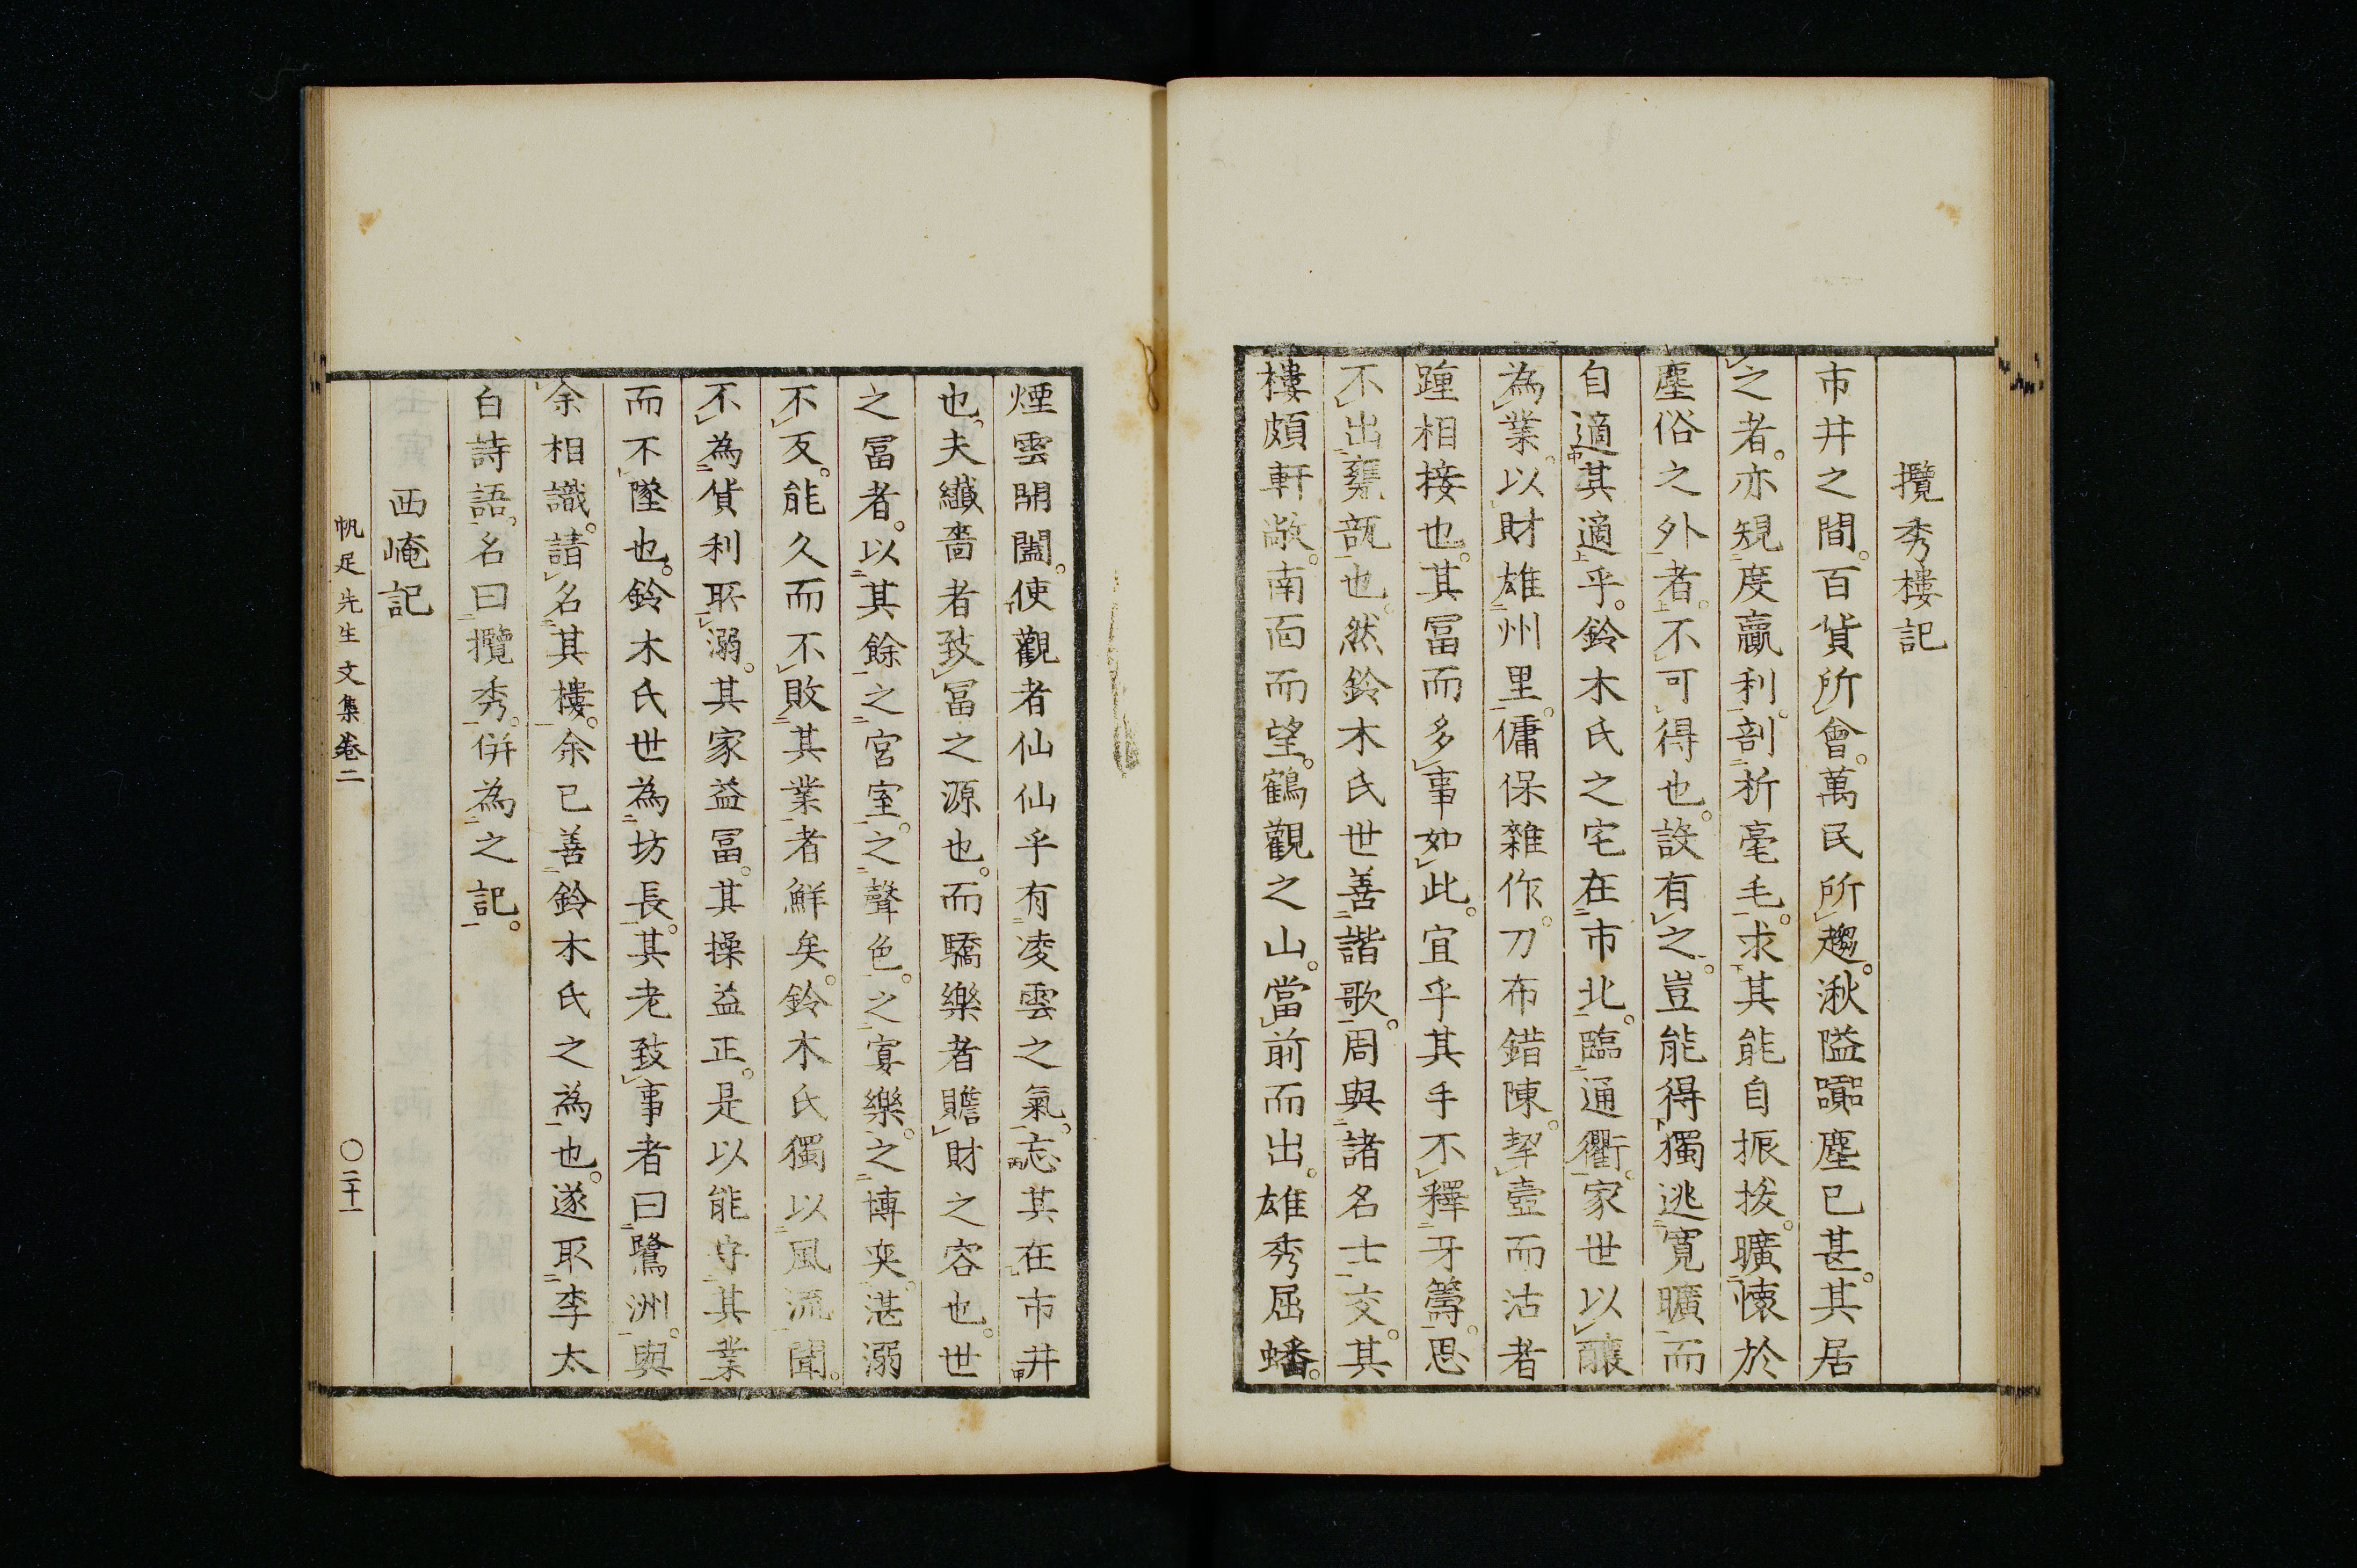 攬秀樓記
市井之間。百貨所會。萬民所趨。湫隘囂塵已甚。其居
之者。亦規度贏利。剖析毫毛。求其能自振拔。曠懷於
塵俗之外者。不可得也。設有之。豈能得獨逃寬曠而
自適其適乎。鈴木氏之宅在市北。臨通衢。家世以釀
為業。以財雄州里。傭保雜作。刀布錯陳。挈壺而沽者
踵相接也。其冨而多事如此。宜乎其手不釋牙籌。思
不出甕瓿也。然鈴木氏世善諧歌。周與諸名士交。其
樓頗軒敞。南面而望。鶴觀之山。當前而出。雄秀屈蟠。
煙雲開闔。使觀者仙仙乎有凌雲之氣。忘其在市井
也。夫纖嗇者致冨之源也。而驕樂者贍財之容也。世
之冨者。以其餘之宮室。之聲色。之宴樂。之博奕。湛溺
不反。能久而不敗其業者鮮矣。鈴木氏獨以風流聞。
不為貨利所溺。其家益冨。其操益正。是以能守其業
而不墜也。鈴木氏世為坊長。其老致事者曰鷺洲。與
余相識。請名其樓。余已善鈴木氏之為也。遂取李太
白詩語。名曰攬秀。併為之記。
西崦記
帆足先生文集卷二
〇二十一